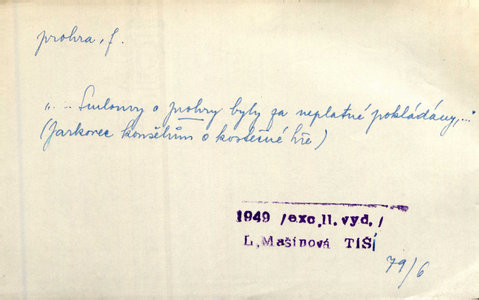 prohra, f.
"... Smlouvy o prohry byly za neplatné pokládány,..."
(Jarkovec konšelům o kostečné hře)
1949 /exc,II. vyd./
L,Mašínová TIŠÍ
79/6